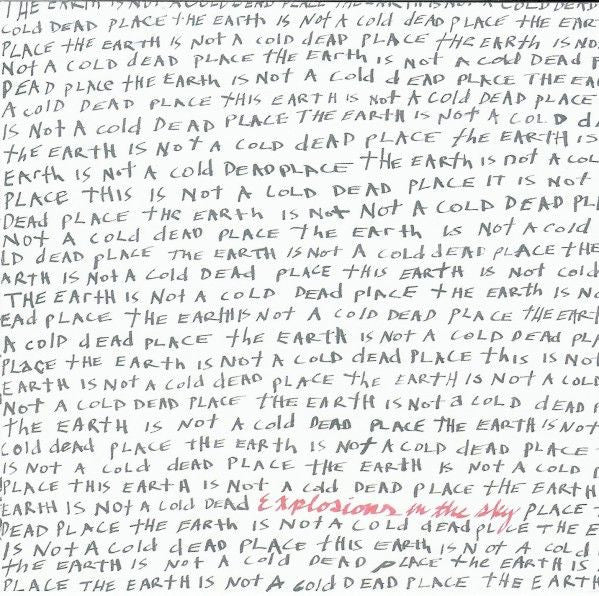 THE EARTH IS NOT A COLD DEAD PLACE THE EARTH IS NOT A COLD DEAD
COLD DEAD PLACE THE EARTH IS NOT A COLD DEAD PLACE THE EAR
PLACE tHE EARTH IS Not A COLD dEAD PLACE THE EARth IS NO
Not A COLD dEAD PLACE THE EARth IS Not A cold DEAD P
DEAD place tHE EARth IS Not A Cold dEAD PLACE THE EA
A cold DEAD PLACE tHIS EARTH IS Not A Cold DEAD PLACE
IS Not A cold DEAD PLACE THE EARtH IS Not A COLD d
the EARTH IS NOT A COLD dEAD PLACE the EARTH IS
EArth is Not A cold DEAD PLACE tHE EARth is not A COL
PLACE THIS IS NOT A COLD DEAD PLACE IT IS Not
DEAd PLACE tHE EARth IS Not Not A COLD DEAD PL
Not A cold dEAD PLACE THE EARth IS Not A cold
LD dEAD PLACE THE EARTH IS Not A cold dEAD PLACE tHE
ARTH IS Not A Cold DEAd PLACE tHIS EARTH IS Not cold
THE EArtH IS Not A COLD DEAd place tHE EARTH IS N
EAd PLACE tHE EARtH IS Not A COLD dEAD PLACE tHE EAR
A cold dEAD PLACE the EARtH IS Not A COLD DEAd PL
PLACE tHE EARth IS Not A COLD dEAD PLACE this IS No
EARTH IS Not A cold dEAD PLACE the EARTH IS Not A COLD
Not A COLD DEAD PLACE tHE EARTH IS Not a COLD dEAD
the EARTH IS NOT A Cold DEAD PLACE THE EARTH IS Not
COLD dead PLACE THE EARTH IS NOT A COLD DEAD PLACE
IS Not A Cold dEAD PLACE tHE EARTH IS Not A COLD
PLACE THIS EARTH IS Not A cold DEAD PLACE tHE EARTH
EARtH IS Not A COLD DEAD Explosions in the sky PLACE
DEAD PLACE tHE EARTH IS NOT A COLD dEAD place THE E
IS Not A Cold dEAD PLACE tHIS EARtH IS Not A COLd
tHE EARTH IS Not A COLD DEAD PLACE the EARTH IS
PLACE THE EARTH IS Not A Cold DEAD PLACE tHE EARTH